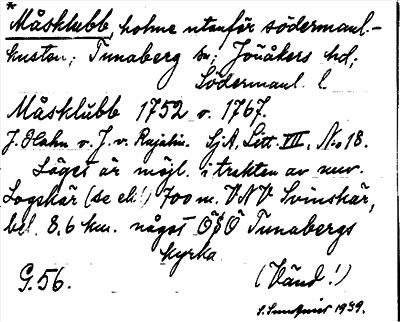 * Måsklubb, holme utanför södermanl.-
kusten; Tunaberg sn; Jönåkers hd;
Södermanl. l.
Måsklubb 1752 o. 1767.
J. Hahn o. J. v. Rajalin. SjA, Litt. VII, No 18.
Läget är möjl. i trakten av nuv.
Logskär (se eh!) 700 m. VNV Svinskär,
bel. 8,6 km. något ÖSÖ Tunabergs
kyrka.
G. 56. (Vänd!)
1939.